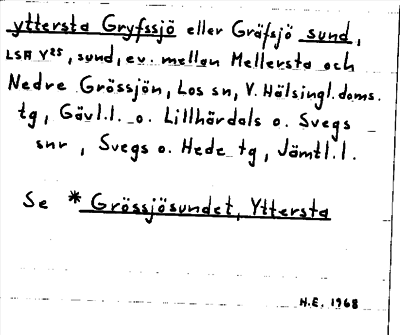 yttersta Gryfssjö eller Gräfsjö sund,
LSA Y25, sund, ev. mellan Mellersta och
Nedre Grössjön, Los sn, V. Hälsingl. doms.
tg, Gävl.l. o. Lillhärdals o. Svegs
snr, Svegs o. Hede tg, Jämtl.l.
Se * Grössjösundet, Yttersta
H.E. 1968